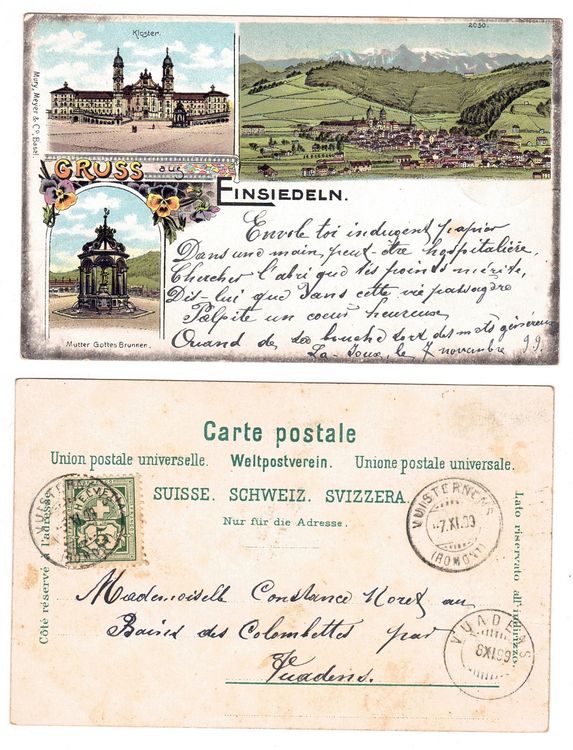 Kloster.
2050.
Mury, Meyer & Co, Basel.
GRUSS aus
EINSIEDELN.
Mutter Gottes Brunnen.
Envole toi indugent papier
Dans une main peut-être hospitalière,
Chercher l'abri que tes points mérite,
Dis-lui que dans cette vie passagère
Palpite un coeur heureux
Quand de sa bouche sort des mots généreux
La Joux, le 7 novembre 99.
Carte postale
Union postale universelle. Weltpostverein. Unione postale universale.
SUISSE. SCHWEIZ. SVIZZERA.
Nur für die Adresse.
Côté réservé à l'adresse.
Lato riservato all'indirizzo.
HELVETIA
VUISTERNENS
-7.XI.99
(ROMONT)
Mademoiselle Constance Moret au
Bains des Colombettes par
Vuadens.
VUADENS
8 XI 99